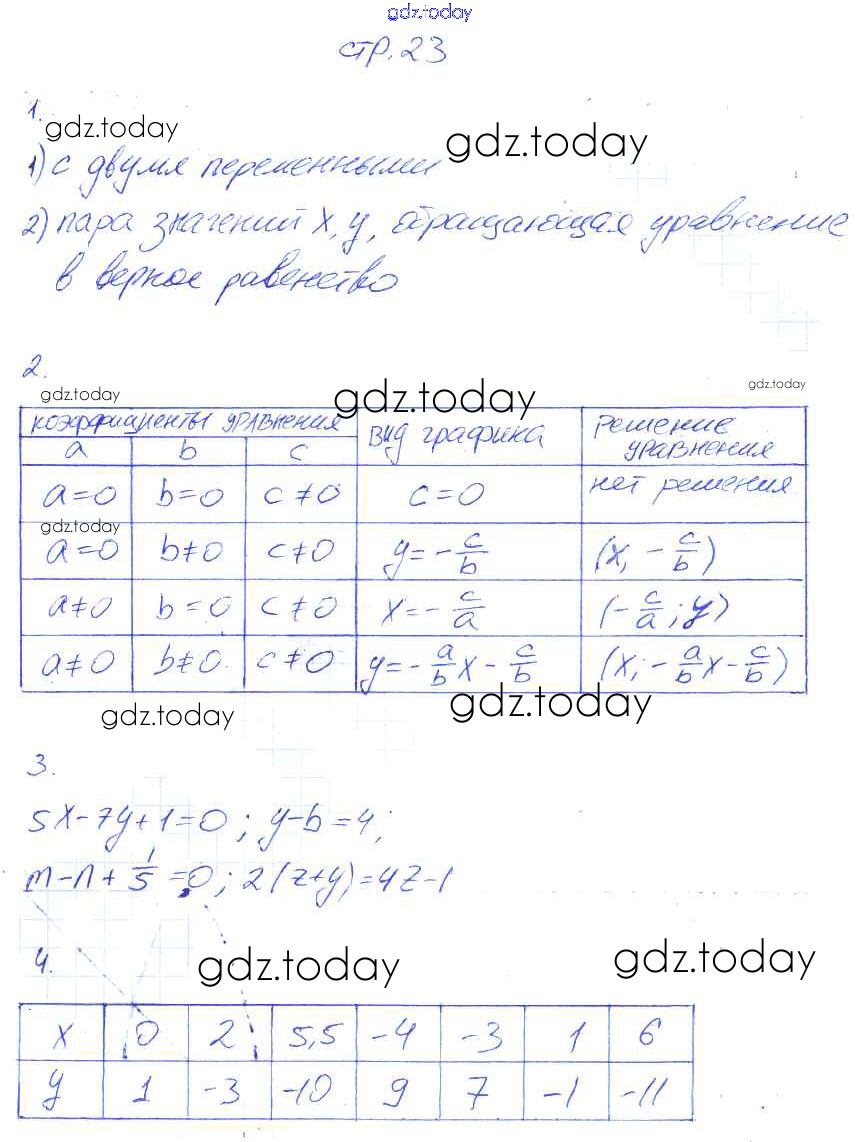 gdz.today
стр. 23
1.
gdz.today
gdz.today
1) с двумя переменными
2) пара значений x, y, обращающая уравнение
в верное равенство
2.
gdz.today
gdz.today
gdz.today
коэффициенты уравнения вид графика решение уравнения
a b c
a=0 b=0 c≠0 c=0 нет решения
gdz.today
a=0 b≠0 c≠0 y=-c/b (x, -c/b)
a≠0 b=0 c≠0 x=-c/a (-c/a; y)
a≠0 b≠0 c≠0 y=-a/b x - c/b (x; -a/b x - c/b)
gdz.today
gdz.today
3.
5x-7y+1=0; y-b=4;
m-n+1/5=0; 2(z+y)=4z-1
4.
gdz.today
gdz.today
x 0 2 5,5 -4 -3 1 6
y 1 -3 -10 9 7 -1 -11